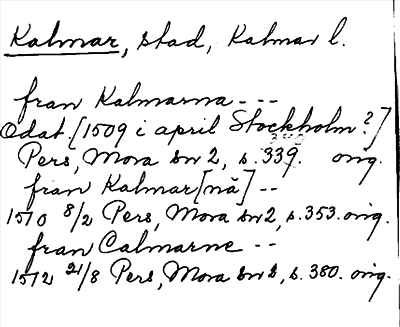 Kalmar, stad, Kalmar l.
fran Kalmarna - - -
Odat. [1509 i april Stockholm?]
Pers, Mora sn 2, s. 339. orig.
fran Kalmar[nä] - -
1510 8/2 Pers, Mora sn 2, s. 353. orig.
fran Calmarne - -
1512 21/8 Pers, Mora sn 2, s. 380. orig.